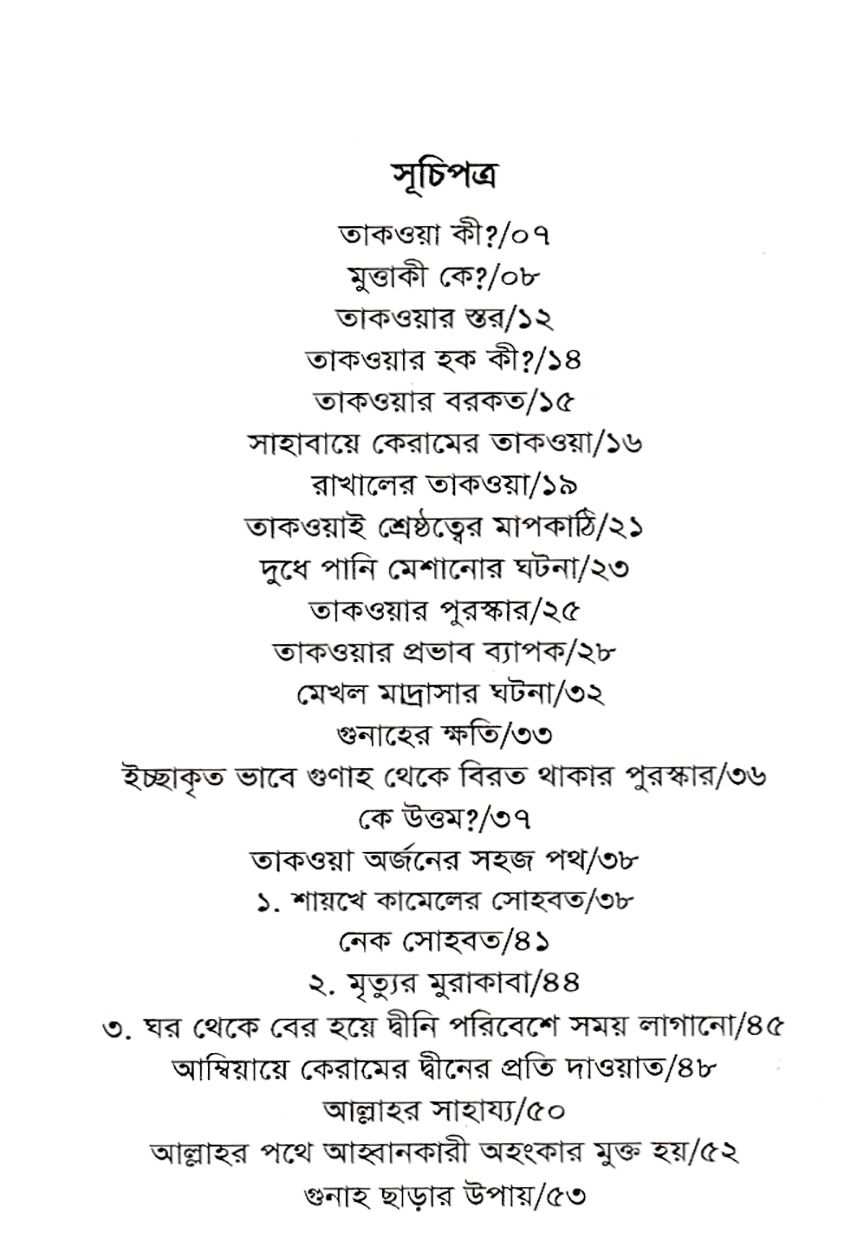 সূচিপত্র
তাকওয়া কী?/০৭
মুত্তাকী কে?/০৮
তাকওয়ার স্তর/১২
তাকওয়ার হক কী?/১৪
তাকওয়ার বরকত/১৫
সাহাবায়ে কেরামের তাকওয়া/১৬
রাখালের তাকওয়া/১৯
তাকওয়াই শ্রেষ্ঠত্বের মাপকাঠি/২১
দুধে পানি মেশানোর ঘটনা/২৩
তাকওয়ার পুরস্কার/২৫
তাকওয়ার প্রভাব ব্যাপক/২৮
মেখল মাদ্রাসার ঘটনা/৩২
গুনাহের ক্ষতি/৩৩
ইচ্ছাকৃত ভাবে গুণাহ থেকে বিরত থাকার পুরস্কার/৩৬
কে উত্তম?/৩৭
তাকওয়া অর্জনের সহজ পথ/৩৮
১. শায়খে কামেলের সোহবত/৩৮
নেক সোহবত/৪১
২. মৃত্যুর মুরাকাবা/৪৪
৩. ঘর থেকে বের হয়ে দ্বীনি পরিবেশে সময় লাগানো/৪৫
আম্বিয়ায়ে কেরামের দ্বীনের প্রতি দাওয়াত/৪৮
আল্লাহর সাহায্য/৫০
আল্লাহর পথে আহ্বানকারী অহংকার মুক্ত হয়/৫২
গুনাহ ছাড়ার উপায়/৫৩